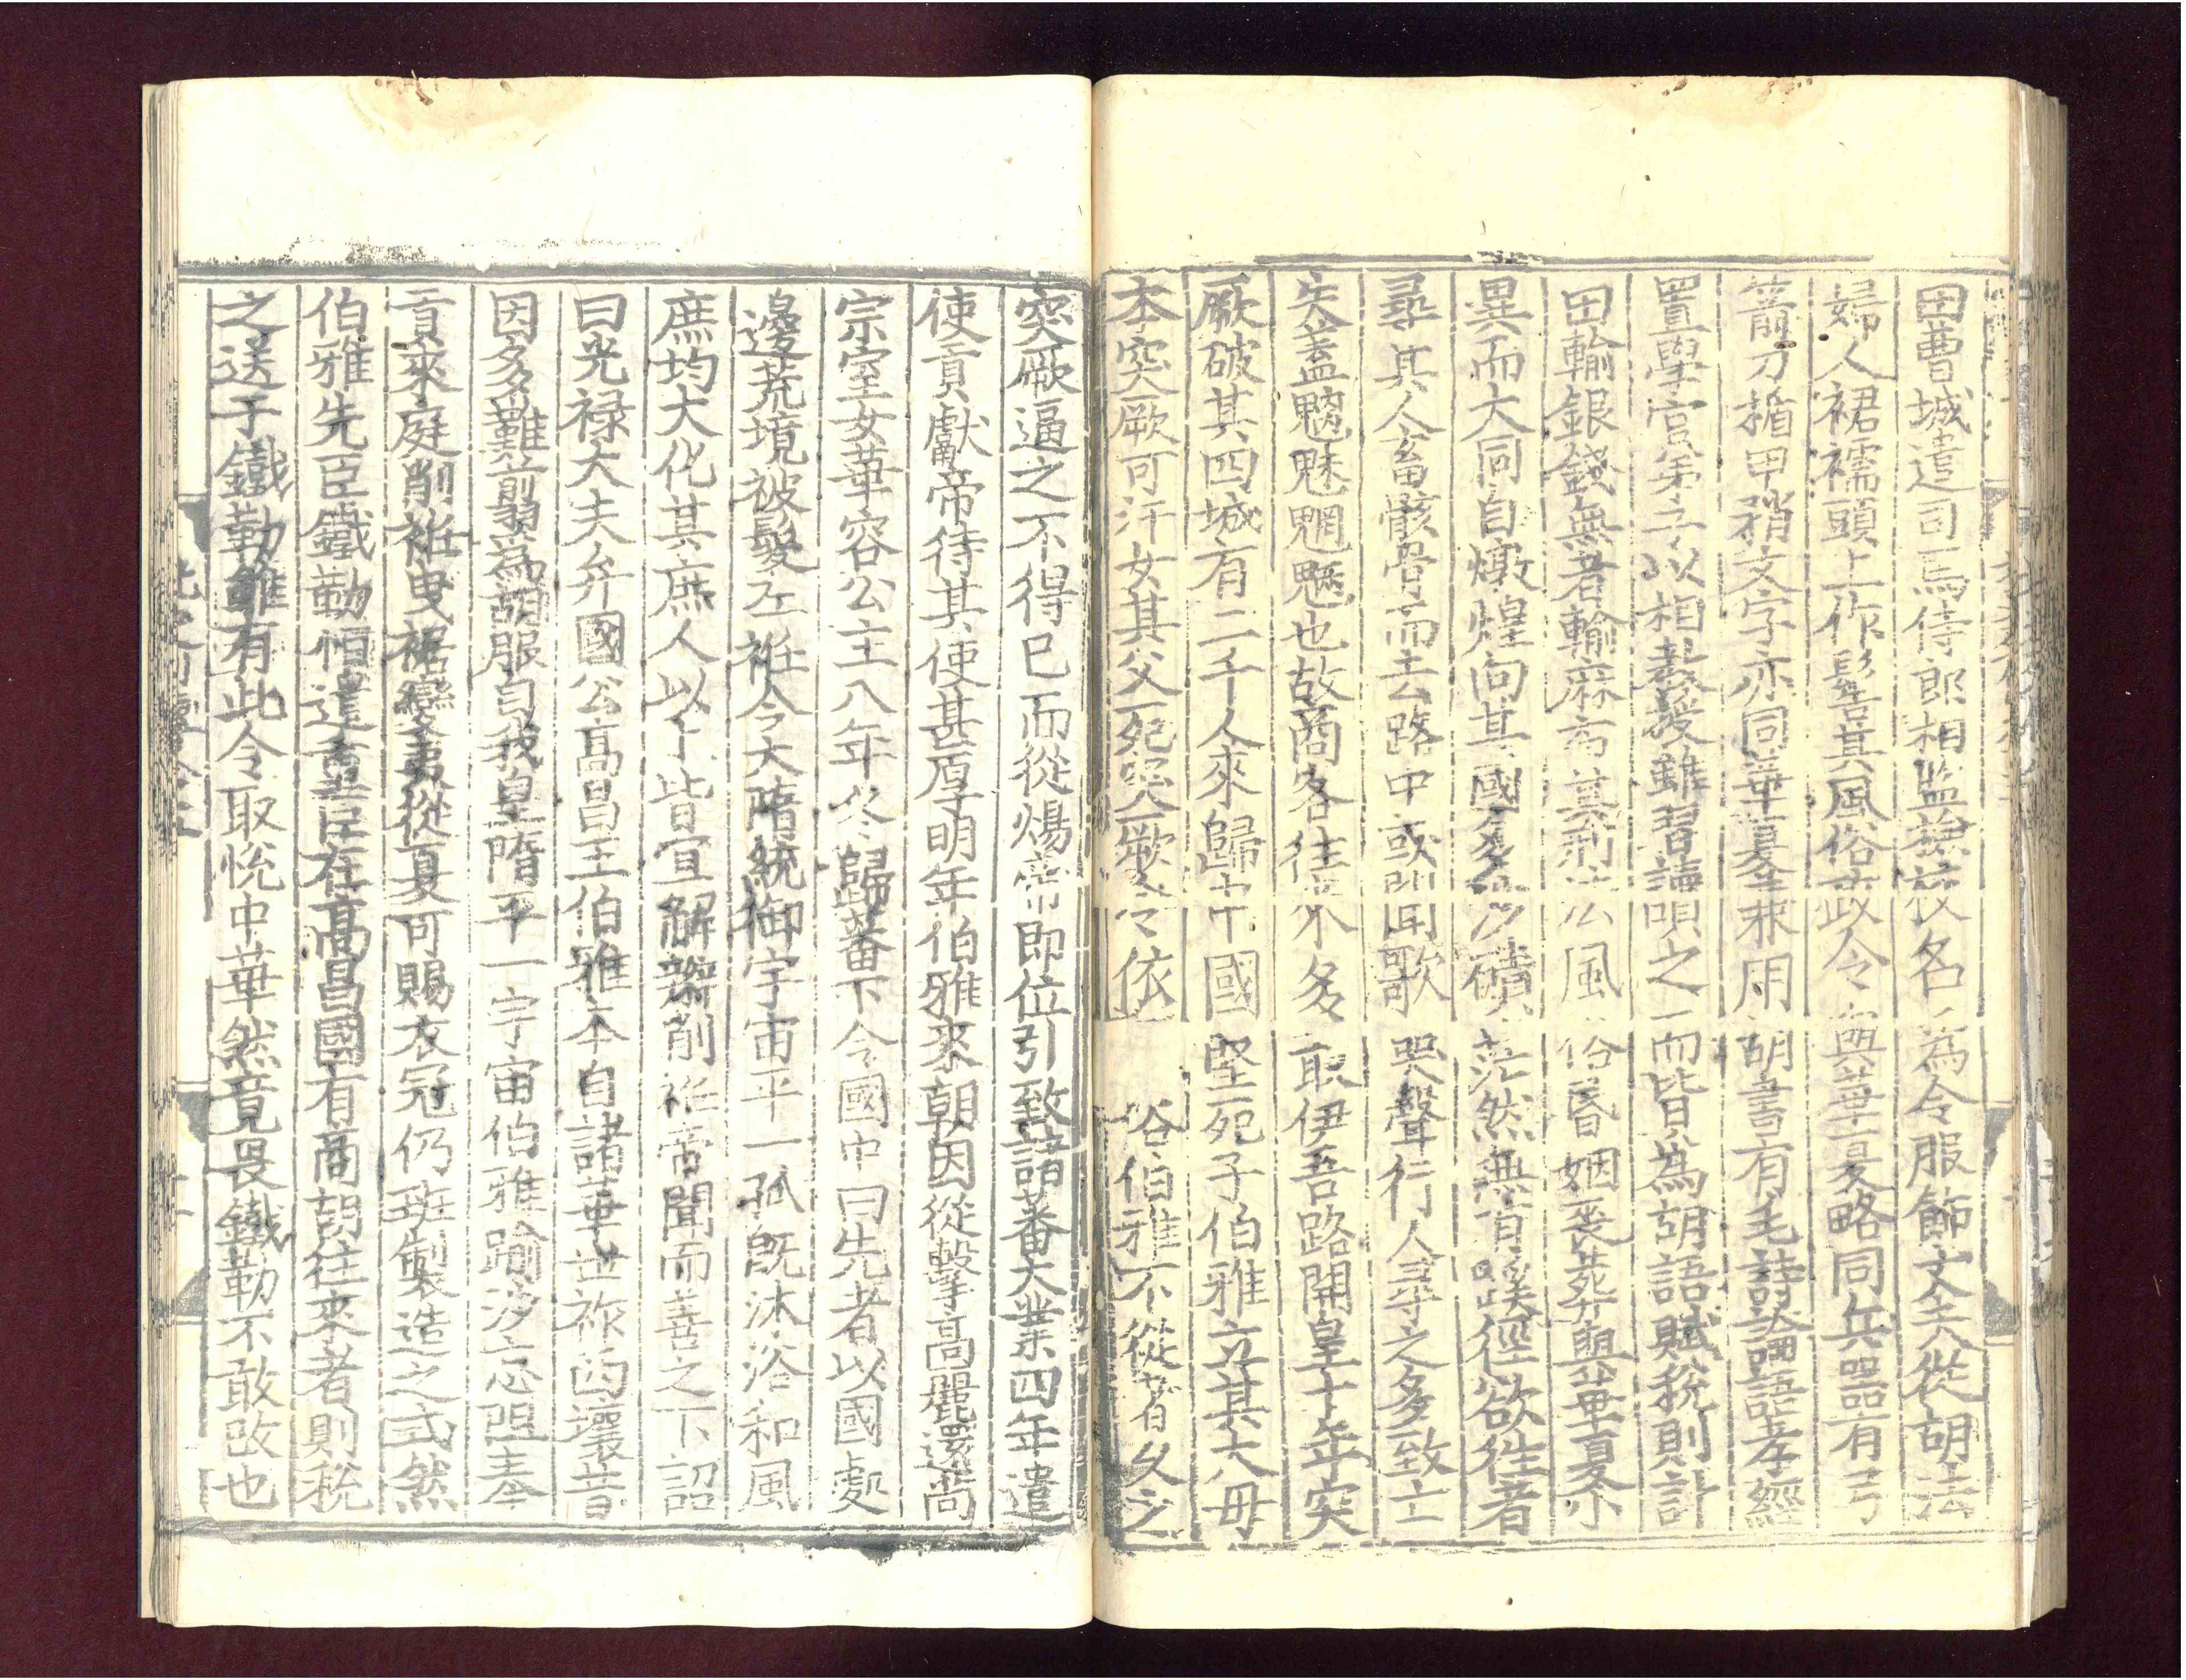 田曹城遣司馬侍郎相監檢校名為令服飾丈夫從胡法
婦人裙襦頭上作髻其風俗政令與華夏略同兵器有弓
箭刀楯甲矟文字亦同華夏兼用胡書有毛詩論語孝經
置學官弟子以相教授雖習讀唄之而皆為胡語賦稅則計
田輸銀錢無者輸麻布其刑法風俗昏姻喪葬與華夏小
異而大同自燉煌向其國多沙磧茫然無有蹊徑欲往者
尋其人畜骸骨而去路中或聞歌哭聲行人尋之多致亡
失蓋魑魅魍魎也故商客往來多取伊吾路開皇十年突
厥破其四城有二千人來歸中國堅死子伯雅立其大母
本突厥可汗女其父死突厥令依俗伯雅不從者久之
突厥逼之不得已而從煬帝即位引致諸蕃大業四年遣
使貢獻帝待其使甚厚明年伯雅來朝因從擊高麗還尚
宗室女華容公主八年冬歸蕃下令國中曰先者以國處
邊荒境被髮左袵今大隋統御宇宙平一孤旣沐浴和風
庶均大化其庶人以下皆宜解辮削袵帝聞而善之下詔
曰光祿大夫弁國公高昌王伯雅本自諸華世祚西壤昔
因多難翦為胡服自我皇隋平一宇宙伯雅踰沙忘阻奉
貢來庭削袵曳裾變夷從夏可賜衣冠仍班製造之式然
伯雅先臣鐵勒恒遣重臣在高昌國有商胡往來者則稅
之送于鐵勒雖有此令取悅中華然竟畏鐵勒不敢改也